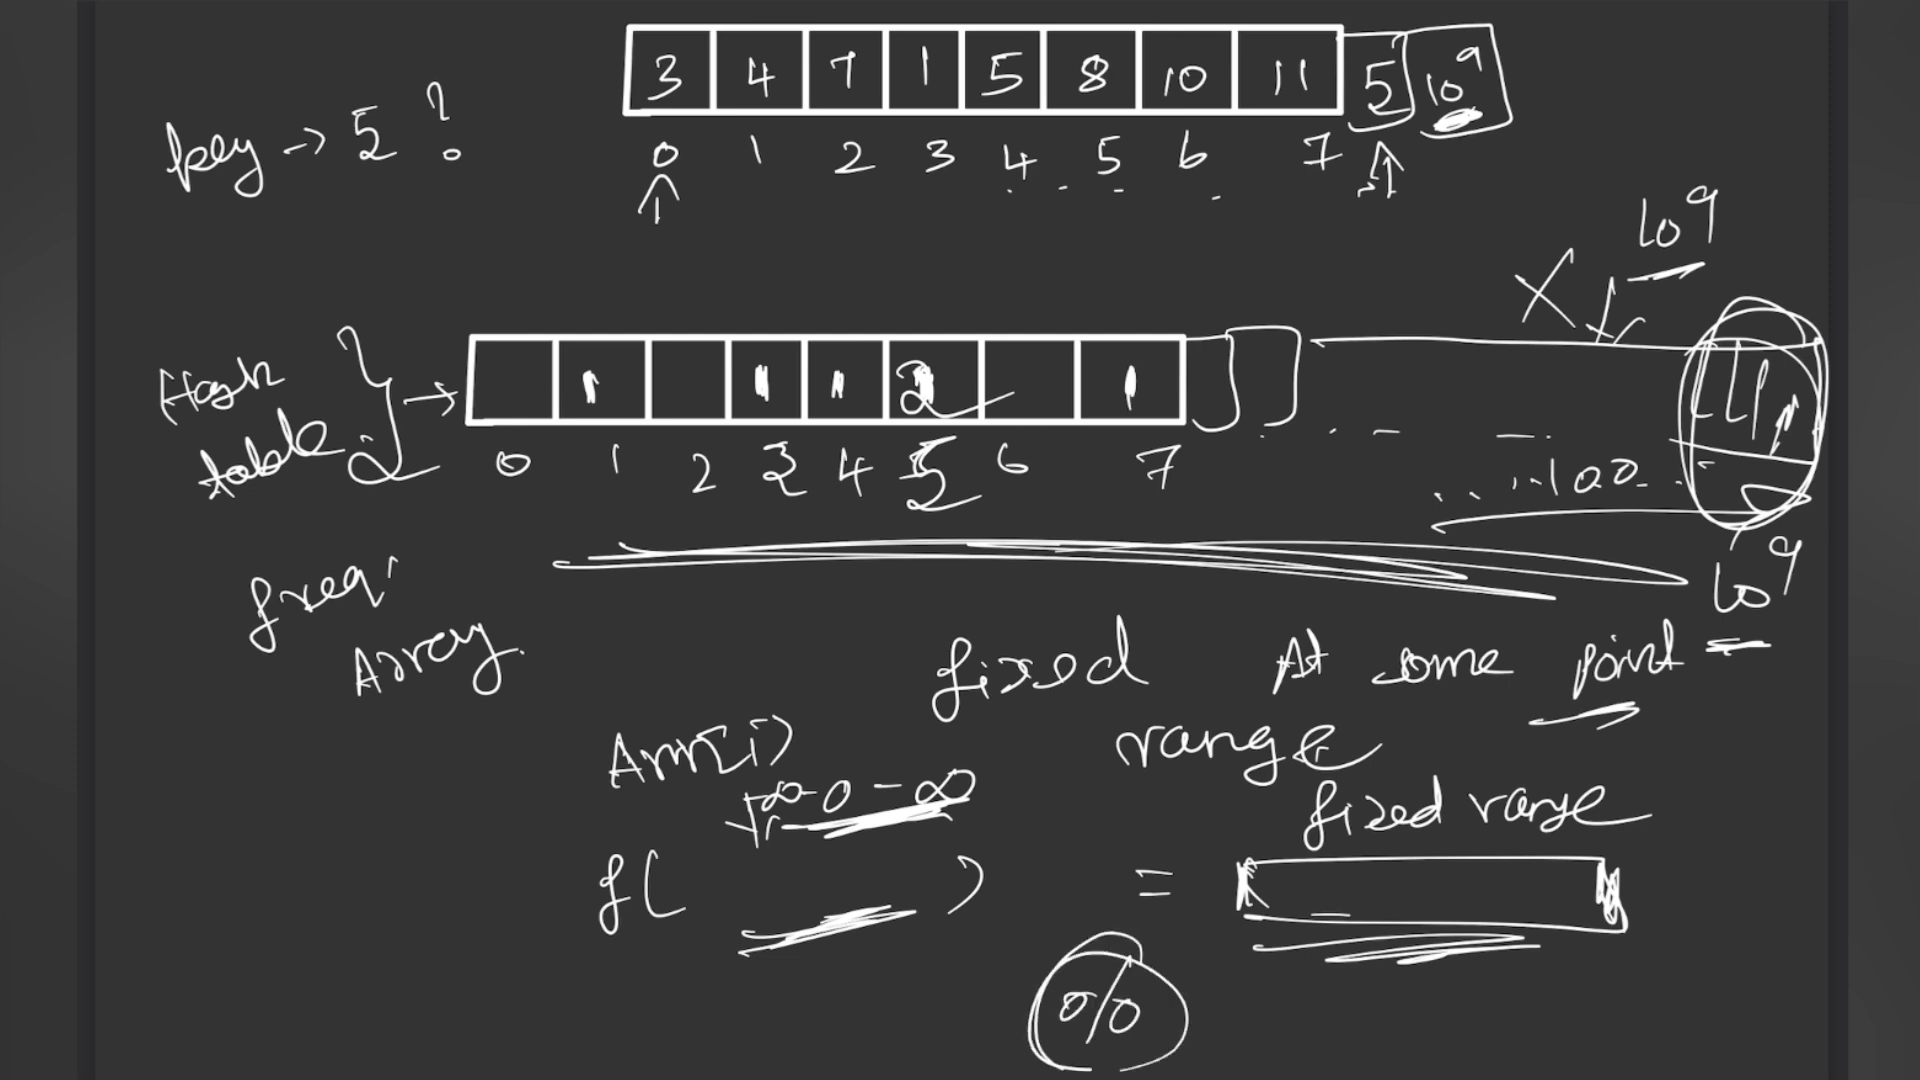 3 4 7 1 5 8 10 11 5 10^9
key -> 5 ?
0 1 2 3 4 5 6 7
10^9
X
Hash table } -> 1 1 1 2 1
0 1 2 3 4 5 6 7
....100..
10^9
freq.
Array.
fixed At some point
Arr[i] range
0 - ∞ fixed range
f( ) =
%